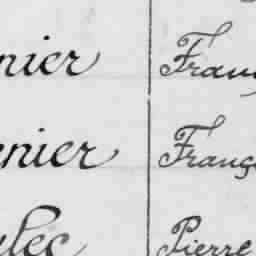 nier Franç
enier Franç
ules Pierre